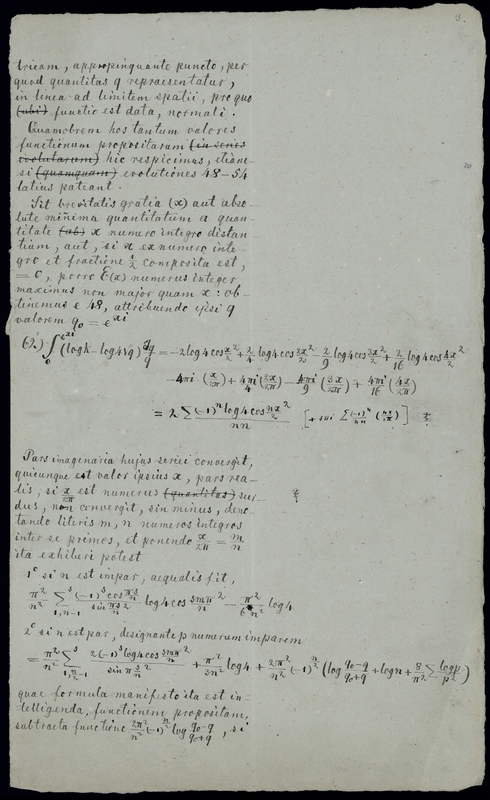 3.
tricam, appropinquante puncto, per
quod quantitas q repraesentatur,
in linea ad limitem spatii, pro quo
(ubi) functio est data, normali.
Quamobrem hos tantum valores
functionum propositarum (in seriem
evolutarum) hic respicimus, etiam-
si (quamquam) evolutiones 48–54
latius pateant.
20
Sit brevitatis gratia (x) aut abso-
lute minima quantitatum a quan-
titate (ab) x numero integro distan-
tium, aut, si x ex numero inte-
gro et fractione 1/2 composita est,
= 0, porro E(x) numerus integer
maximus non major quam x: ob-
tinemus e 48, attribuendo ipsi q
valorem q₀ = e^{xi}
62.) ∫₀^{e^{xi}} (log k − log 4√q) dq/q = −2 log 4 cos x/2 ² + 2/4 log 4 cos 2x/2 ² − 2/9 log 4 cos 3x/2 ² + 2/16 log 4 cos 4x/2 ²
− 4πi · (x/2π) + 4πi/4 (2x/2π) − 4πi/9 (3x/2π) + 4πi/16 (4x/2π)
= 2 Σ (−1)ⁿ log 4 cos nx/2 ² / nn [+ 4πi Σ (−1)ⁿ/nn (nx/2π)]
Pars imaginaria hujus seriei convergit,
quicunque est valor ipsius x, pars rea-
lis, si x/2π est numerus (quantitas) sur-
dus, non convergit, sin minus, deno-
tando literis m, n numeros integros
inter se primos, et ponendo x/2π = m/n
ita exhiberi potest
1° si n est impar, aequalis fit,
π²/n² Σ^s_{1,n−1} (−1)^s cos πs/n / sin πs/n ² log 4 cos smπ/n ² − π²/6n² log 4
2° si n est par, designante p numerum imparem
= π²/n² Σ^s_{1,n/2−1} 2(−1)^s log 4 cos smπ/n ² / sin π s/n ² + π²/3n² log 4 + 2π²/n² (−1)^{n/2} (log (q₀−q)/(q₀+q) + log n + 8/π² Σ log p/p²)
quae formula manifesto ita est in-
telligenda, functionem propositam,
subtracta functione 2π²/n² (−1)^{n/2} log (q₀−q)/(q₀+q), si